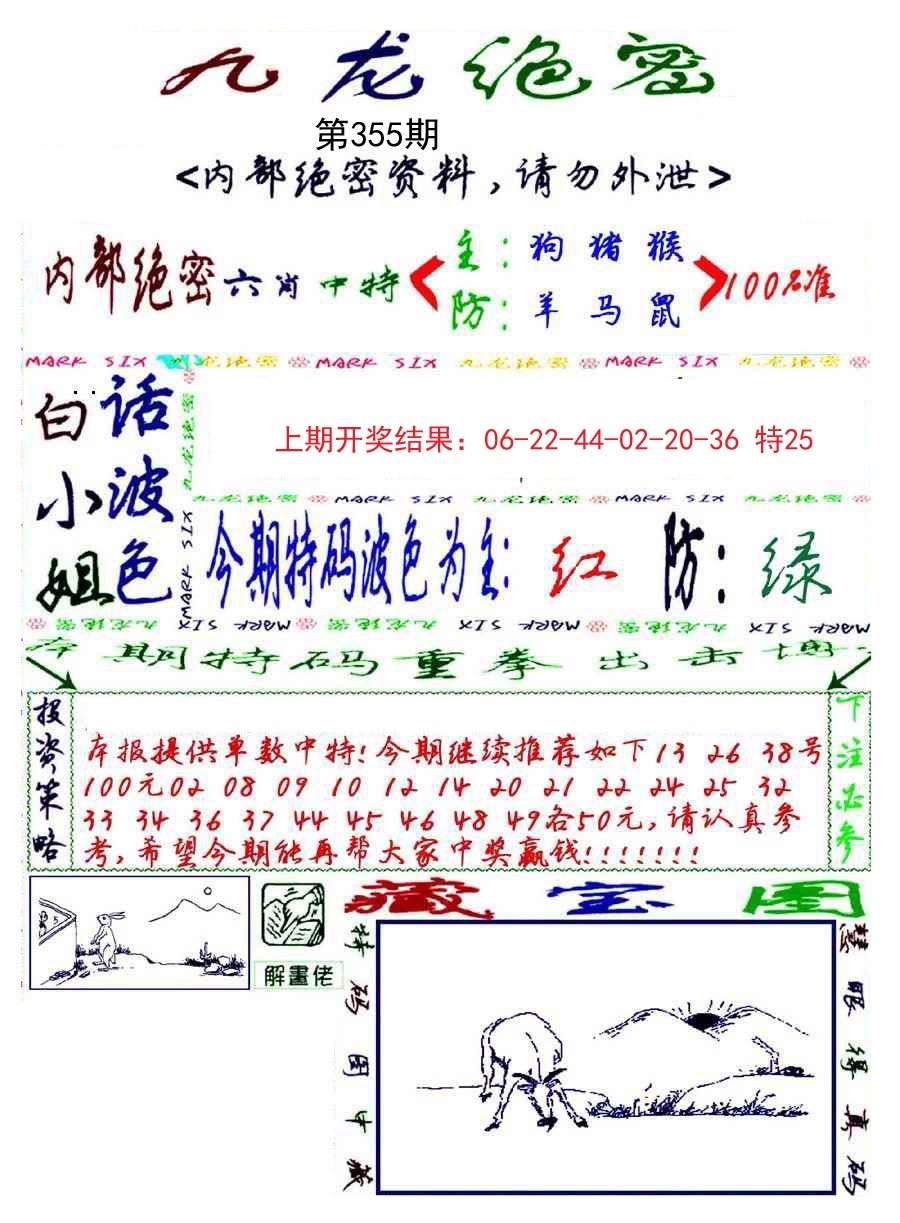 九龙绝密
第355期
<内部绝密资料,请勿外泄>
内部绝密六肖中特
主:狗猪猴
防:羊马鼠
100%准
MARK SIX 九龙绝密 MARK SIX 九龙绝密 MARK SIX 九龙绝密
白小姐
话波色
九龙绝密 MARK SIX
上期开奖结果：06-22-44-02-20-36 特25
九龙绝密 MARK SIX 九龙绝密 MARK SIX 九龙绝密
今期特码波色为主:红 防:绿
九龙绝密 MARK SIX 九龙绝密 MARK SIX 九龙绝密 MARK SIX
本期特码重拳出击博
投资策略
本报提供单数中特!今期继续推荐如下13 26 38号
100元02 08 09 10 12 14 20 21 22 24 25 32
33 34 36 37 44 45 46 48 49各50元,请认真参
考,希望今期能再帮大家中奖赢钱!!!!!!!
下注必参
5
解畫佬
藏宝图
特码图中藏
慧眼得真码